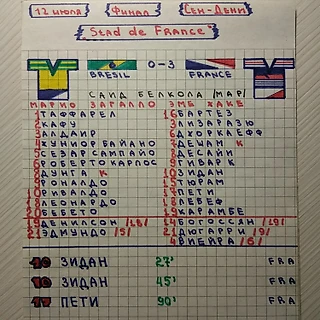 12 июля Финал Сен-Дени
Stad de France"
BRESIL 0-3 FRANCE
САИД БЕЛКОЛА /МАР/
МАРИО ЗАГАЛЛО ЭМЕ ЖАКЕ
1 ТАФФАРЕЛ 16 БАРТЕЗ
2 КАФУ 3 ЛИЗАРАЗЮ
3 АЛДАИР 6 ДЖОРКАЕФФ
4 ЖУНИОР БАЙАНО 7 ДЕШАМ К
5 СЕЗАР САМПАЙО 8 ДЕСАЙИ
6 РОБЕРТО КАРЛОС 9 ГИВАРК
8 ДУНГА К 10 ЗИДАН
9 РОНАЛДО 15 ТЮРАМ
10 РИВАЛДО 17 ПЕТИ
18 ЛЕОНАРДО 18 ЛЕБЕФ
20 БЕБЕТО 19 КАРАМБЕ
19 ДЕНИЛСОН /18/ 14 БОГОССЯН /19/
21 ЭДМУНДО /5/ 21 ДЮГАРРИ /9/
4 ВИЕЙРА /6/
10 ЗИДАН 27' FRA
10 ЗИДАН 45' FRA
17 ПЕТИ 90' FRA